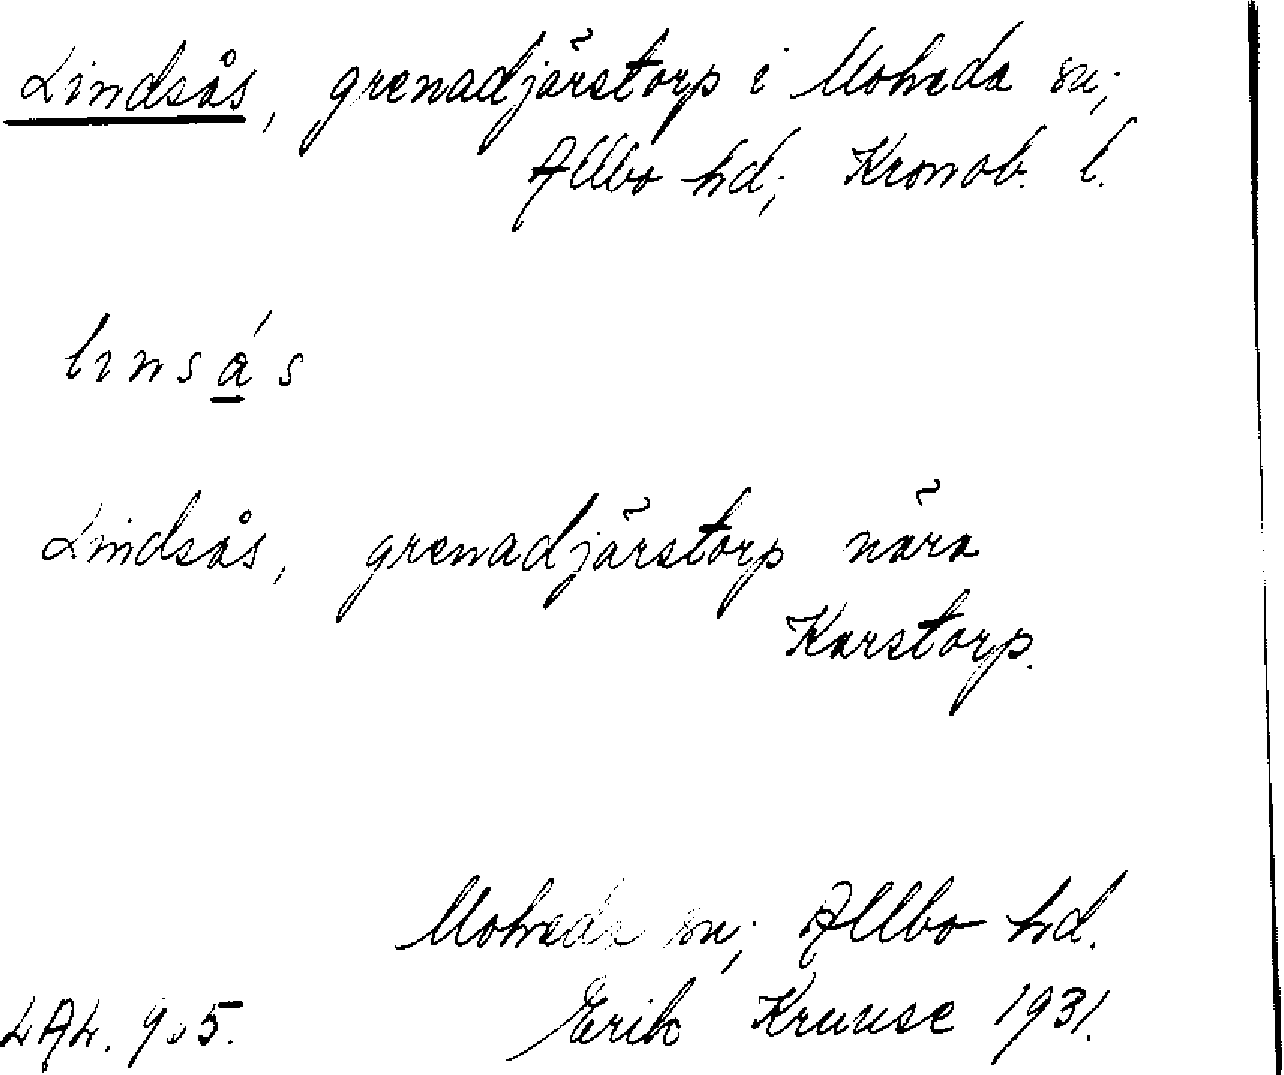 Lindsås, grenadjärstorp i Moheda sn;
Allbo hd; Kronob. l.
linsás
Lindsås, grenadjärstorp nära
Karstorp.
Moheda sn; Allbo hd.
LAL. 905. Erik Kruuse 1931.